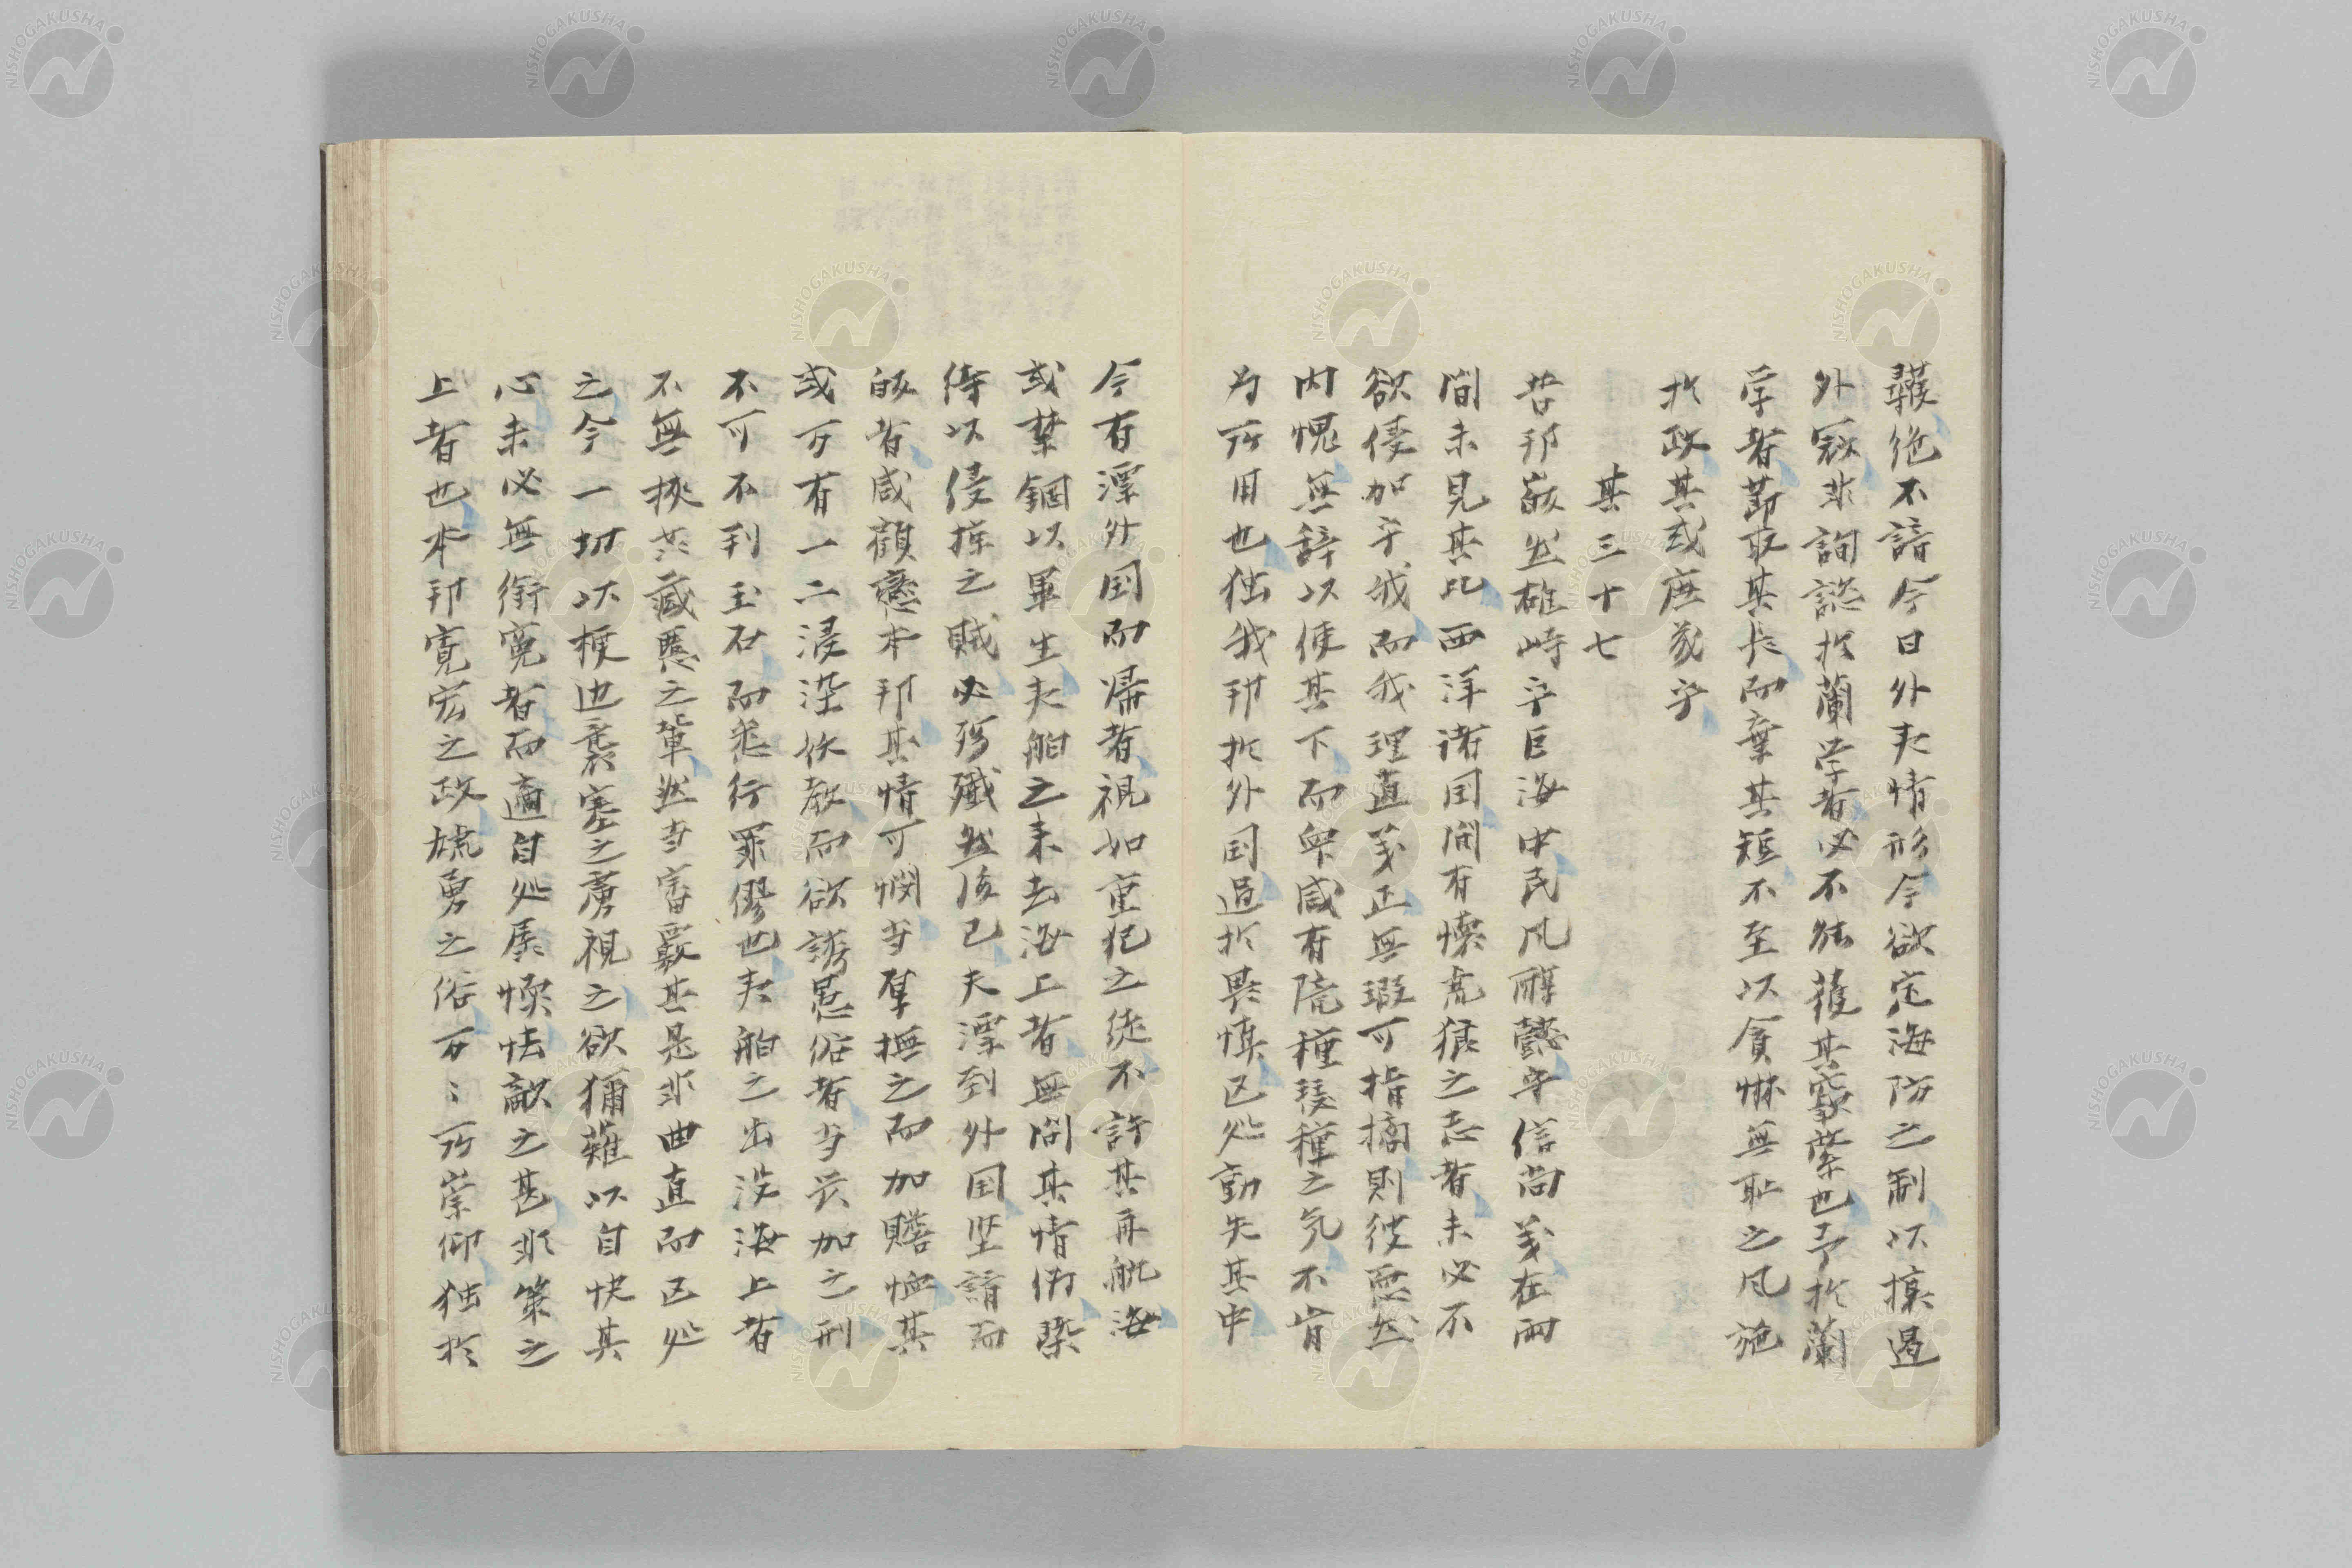 絶不諳今日外夷情形今欲定海防之制以遏
外寇非詢諮於蘭学者必不能獲其窾綮也予於蘭
学者節取其長而棄其短不至以貪惏無恥之風施
於政其或庶幾乎
其三十七
吾邦巌然雄峙乎巨海中民風醇懿守信尚義在両
間未見其比西洋諸国間有懐虎狼之志者未必不
欲侵加乎我而我理直義正無瑕可指摘則彼悪然
内愧無辞以使其下而衆咸有種種之気不肯
為所用也独我邦於外国過於畏慎区処動失其中
今有漂外国而帰者視如重犯之徒不許其再航海
或禁錮以畢生夫舶之来去海上者無問其情偽槩
待以侵掠之賊必殄殲然後已夫漂到外国坐請而
皈者咸顧恋本邦其情可憫当厚撫之而加贍恤其
或万有一二浸淫妖教而欲誘愚俗者当災加之刑
不可不判玉石而悉行罪僇也夷舶之出没海上者
不無挟蔵慝之輩然当審覈其是非曲直而区処
之今一切以梗辺塞之虜視之欲獮薙以自快其
心未必無銜冤者而適自処孱愞怯敵之甚非策之
上者也本邦寛宏之政驍勇之俗万〻所崇仰独於
NISHOGAKUSHA